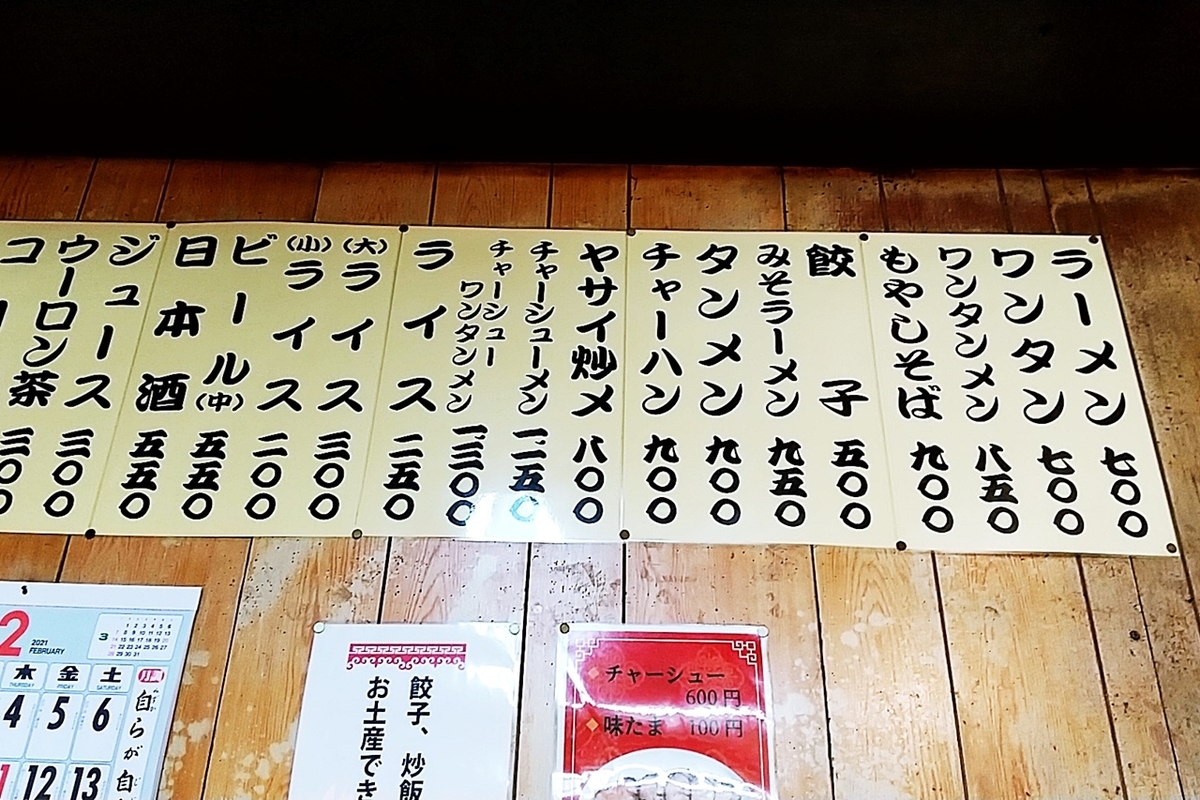 ラーメン 七〇〇
ワンタン 七〇〇
ワンタンメン 八五〇
もやしそば 九〇〇
餃子 五〇〇
みそラーメン 九五〇
タンメン 九〇〇
チャーハン 九〇〇
ヤサイ炒メ 八〇〇
チャーシューメン 一、一五〇
チャーシューワンタンメン 一、三〇〇
ライス 二五〇
(大)ライス 三〇〇
(小)ライス 二〇〇
ビール(中) 五五〇
日本酒 五五〇
ジュース 三〇〇
ウーロン茶 三〇〇
2 2021 FEBRUARY
3
木 金 土
THURSDAY FRIDAY SATURDAY
4 5 6
12 13
自らが自
餃子、炒飯
お土産でき
チャーシュー
600円
味たま 100円